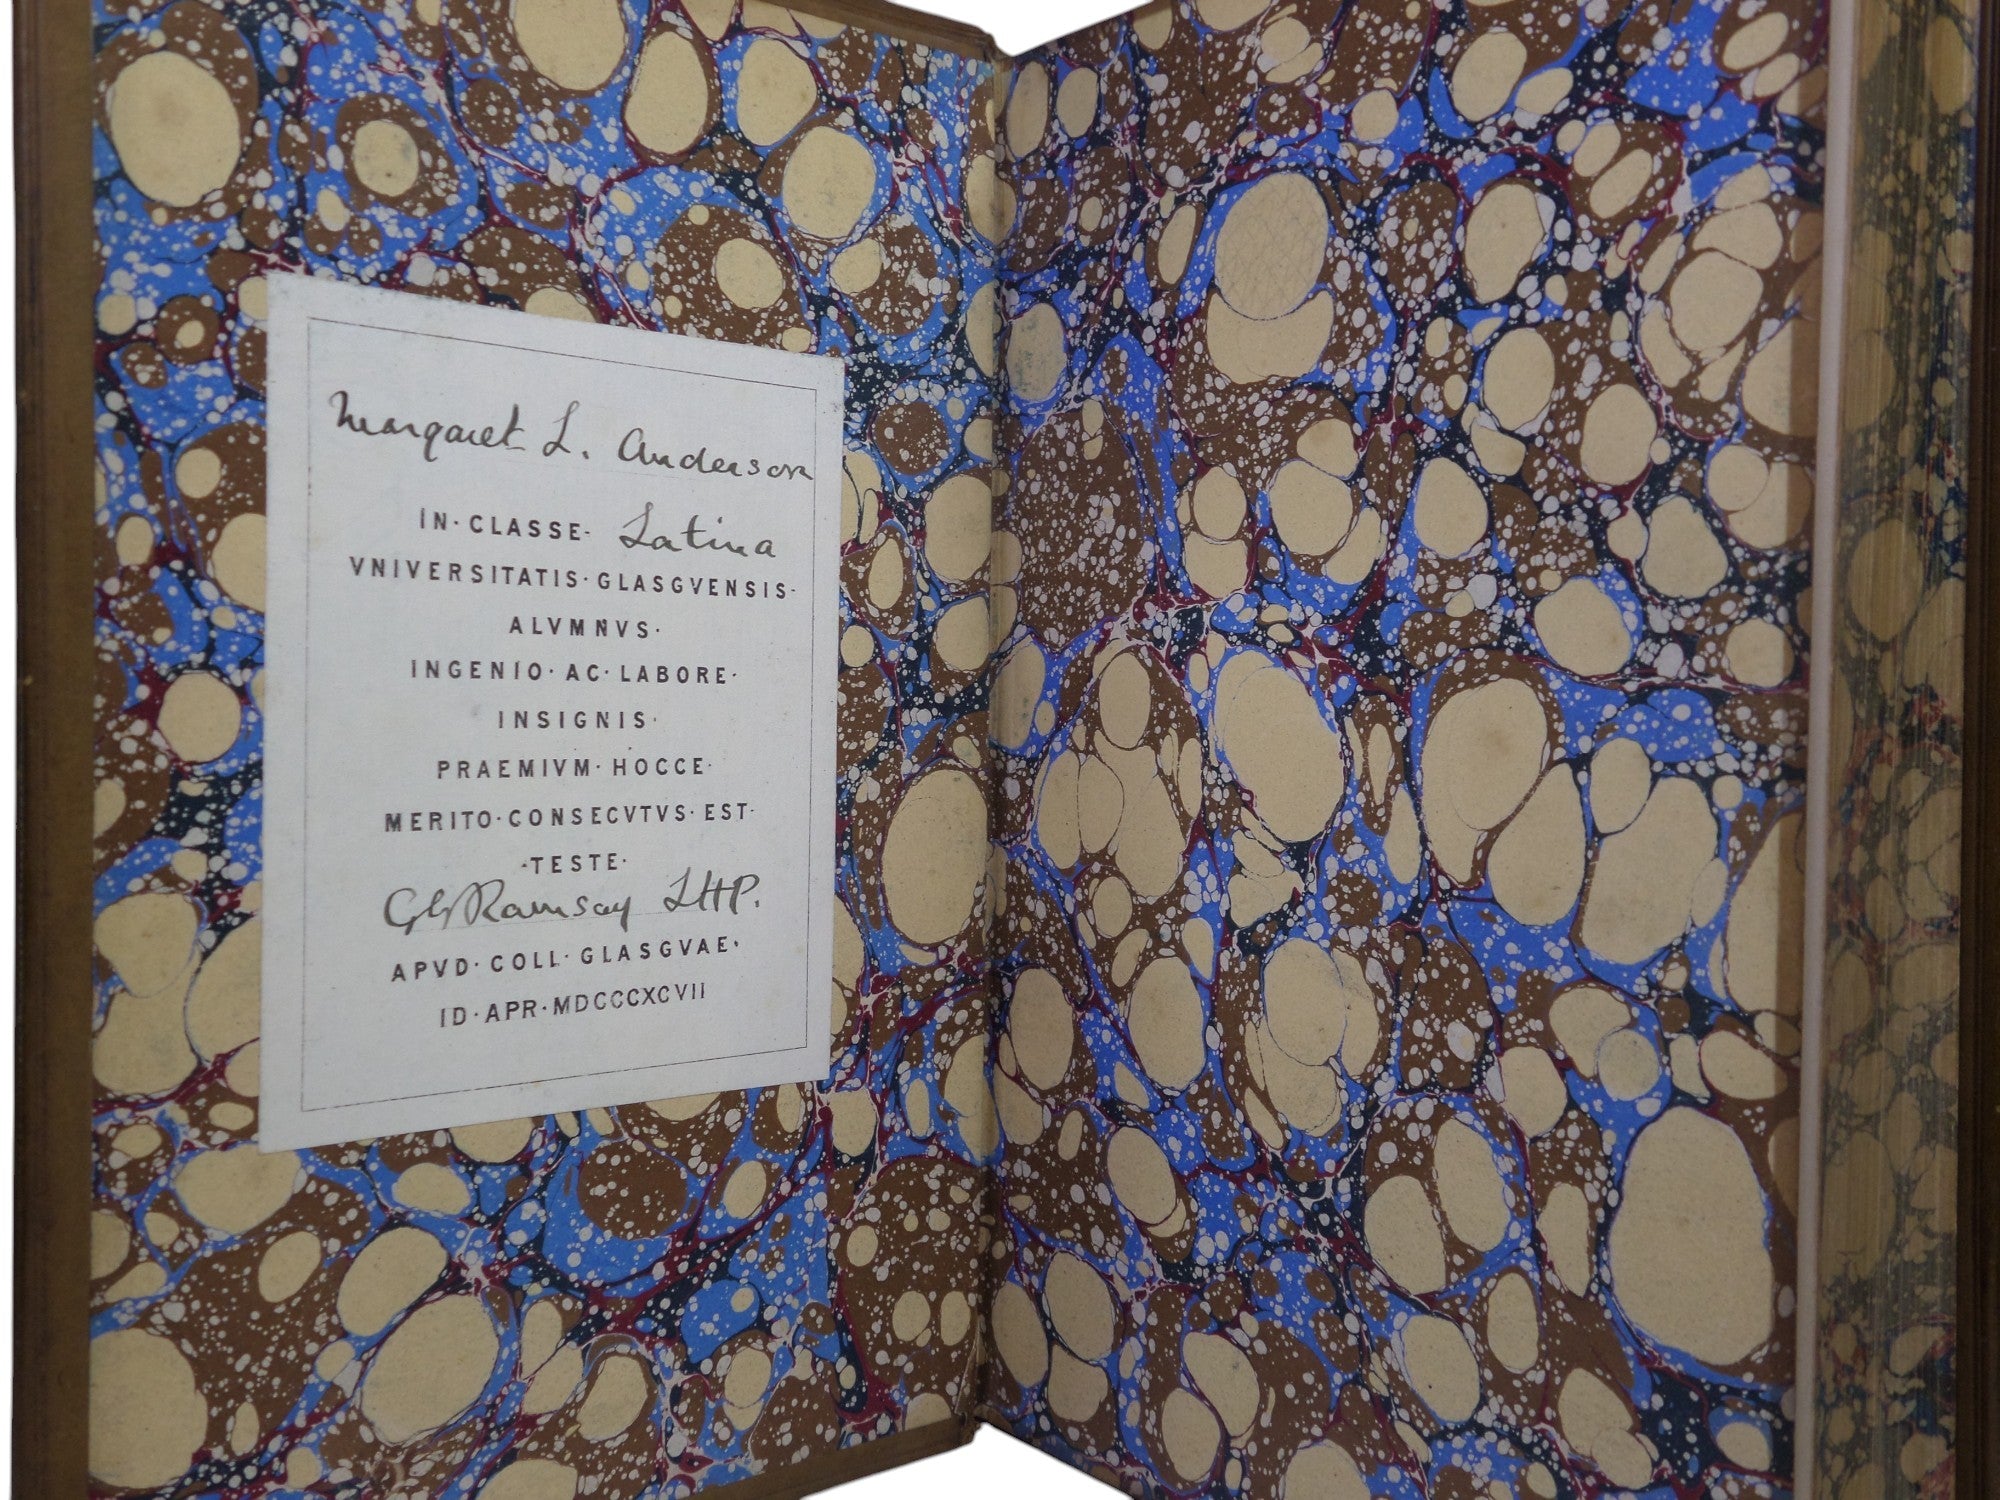 Margaret L. Anderson
IN· CLASSE· Latina
VNIVERSITATIS·GLASGVENSIS·
ALVMNVS·
INGENIO·AC·LABORE·
INSIGNIS·
PRAEMIVM·HOCCE·
MERITO·CONSECVTVS·EST·
·TESTE·
GG Ramsay LHP.
APVD·COLL·GLASGVAE·
ID·APR·MDCCCXCVII